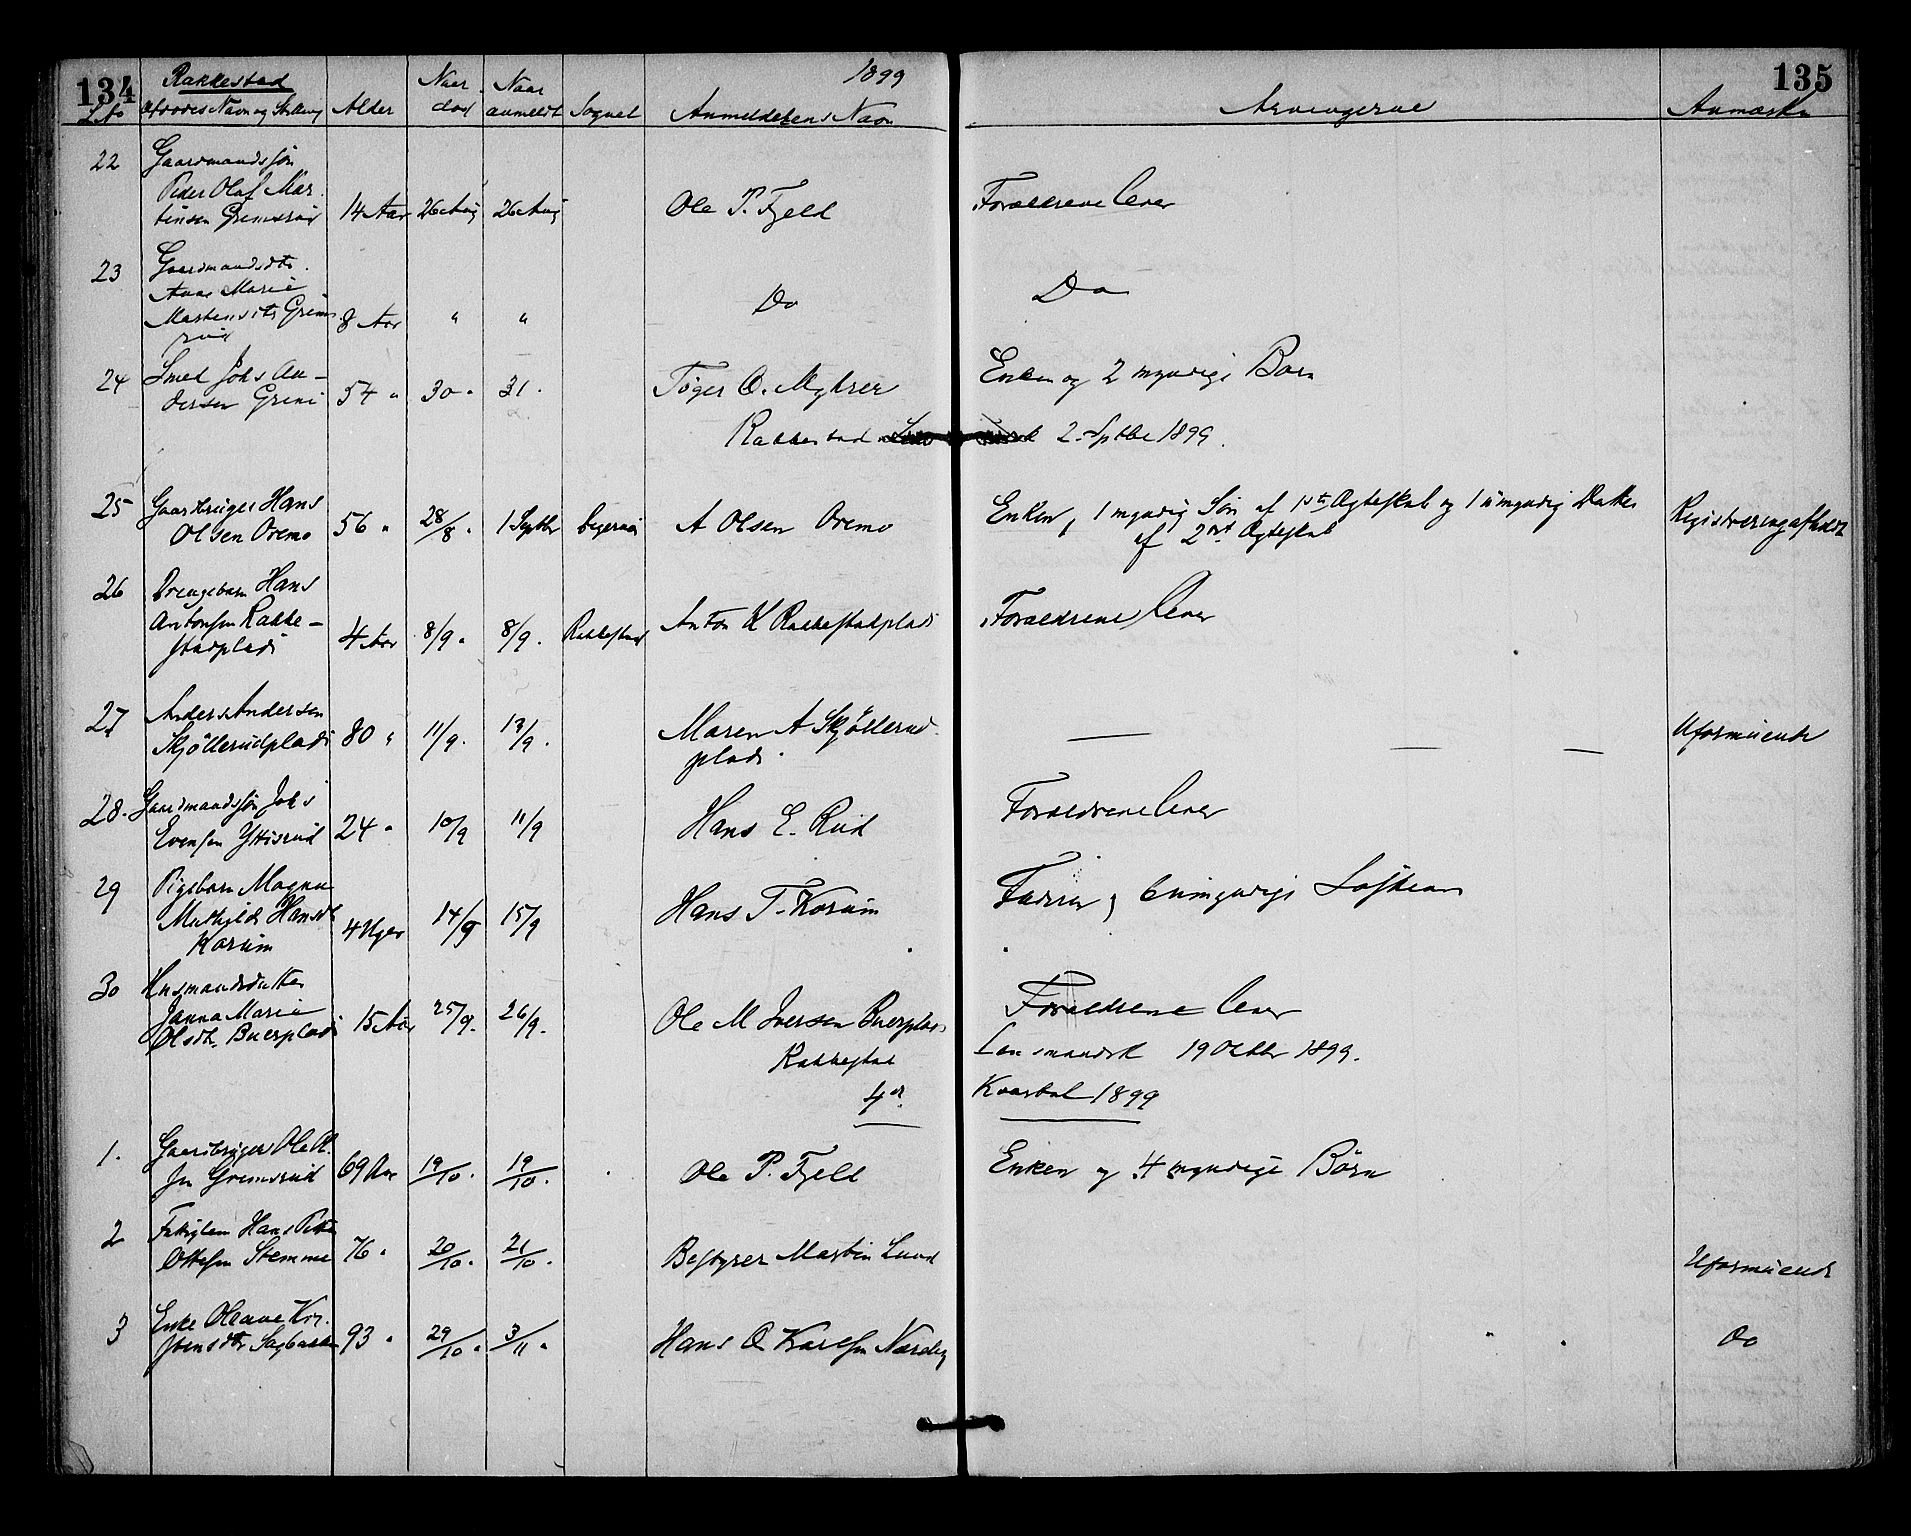 134 Rakkestad 1899 135
L No Afdødes Navn og Stilling Alder Naar død Naar anmeldt Sognet Anmelderens Navn Arvingerne Anmærkn
22 Gaardmandssøn
Peder Olaf Mar
tinsen Grimsrud 14 Aar 26 Aug 26 Aug Ole P. Fjeld Forældrene lever
23 Gaardmandsdtr.
Anna Marie
Martinsdtr Grims
rud 8 Aar " " Do Do
24 Smed Johs An-
dersen Grini 54 " 30 " 31. Tøger O. Myhrer Enken og 2 myndige Børn
Rakkestad 2 Septbr 1899.
25 Gaardbruger Hans
Olsen Oremo 56 " 28/8. 1 Septbr Degernæs A Olsen Oremo Enken, 1 myndig Søn af 1ste Ægteskab og 1 umyndig Datter
af 2det Ægteskab Registreringsforr
26 Drengebarn Hans
Antonsen Rakke-
stadplads 4 Aar 8/9 " 8/9. Rakkestad Anton K Rakkestadplads Forældrene lever
27 Anders Andersen
Skjöllerudplads 80 " 11/9. 13/9. Maren A Skjöllerud
plads. — — — Uformuende
28. Gaardmandssøn Johs
Evensen Ytterud 24 " 10/9 11/9 Hans E. Rud Forældrene lever
29 Pigebarn Magna
Mathilde Hansdt
Kasrum 4 Uger 14/9 15/9 Hans T. Korum Faderen, 6 umyndige Søskende
30 Husmandsdatter
Janna Marie
Olsdt. Buerplads 15 Aar 25/9. 26/9. Ole M Iversen Buerplads Forældrene lever
Rakkestad Lensmandsd 19 Oktbr 1899.
4de Kvartal 1899
1. Gaardbruger Ole Ol.
sen Grimsrud 69 Aar 19/10. 19/10. Ole P. Fjeld Enken og 4 myndige Børn
2 Fattiglem Hans Petter
Ottesen Stemme 76 " 20/10. 21/10. Bestyrer Martin Lund Uformuende
3 Enke Oleane Kri.
stensdtr Sagbakken 93 " 29/10 " 3/11 " Hans O Karlsen Nordby Do